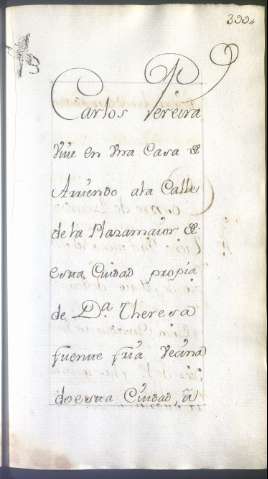 300
Carlos Pereira
Vive en vna Casa de
Arriendo ala Calle
de la Plazamaior de
esta Ciudad propia
de D.ª Theresa
fuente
Vecina
de esta Ciudad, â